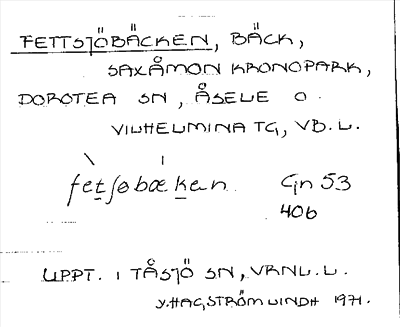 FETTSJÖBÄCKEN, BÄCK,
SAXÅMON KRONOPARK,
DOROTEA SN, ÅSELE O.
VILHELMINA TG, VB. L.
fet̲ʃøbæk̲en Gn 53
406
UPPT. I TÅSJÖ SN, VRNL. L.
Y. HAGSTRÖM LINDH 1971.